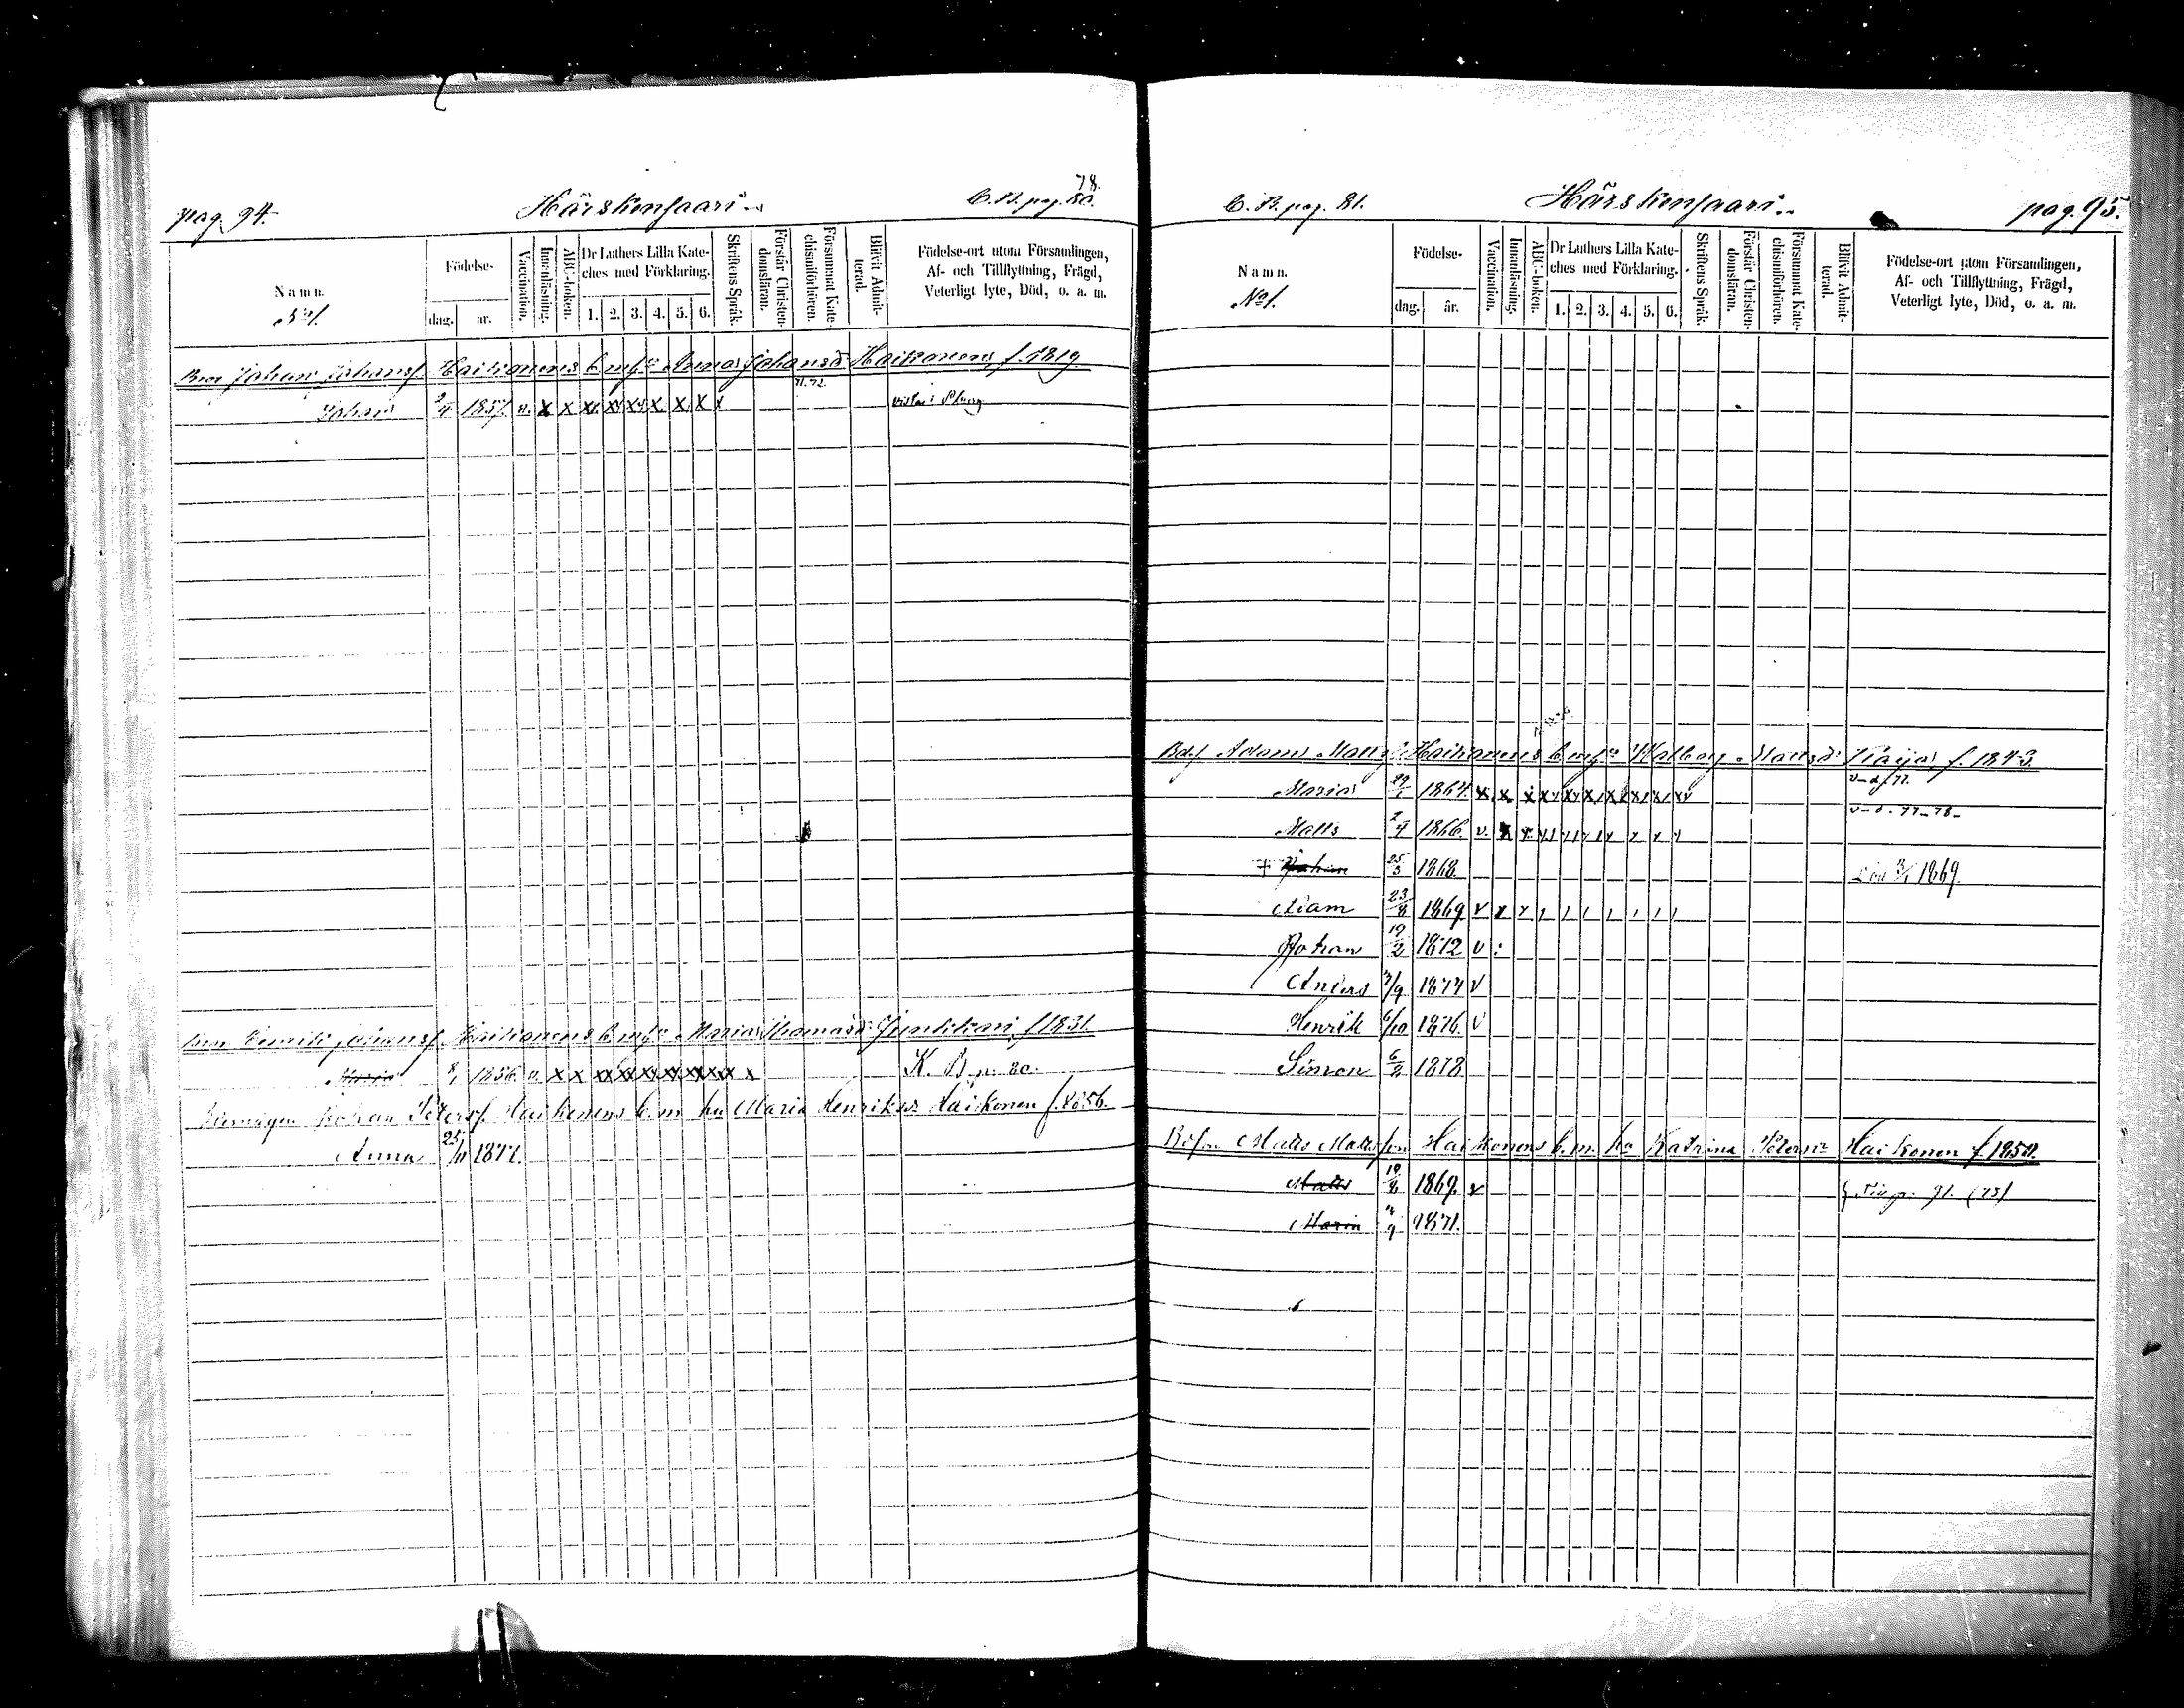 pag. 94. Härskensaari.. C. B. pag. 80. 78.
Namn. Födelse- Vaccination. Innanläsning. ABC-boken. Dr Luthers Lilla Kateches med Förklaring. Skriftens Språk. Förstår Christendomsläran. Försummat Katechismiförhören. Blifvit Admitterad. Födelse-ort utom Församlingen,
Af- och Tillflyttning, Frägd,
Veterligt lyte, Död, o. a. m.
No 1. dag. år. 1. 2. 3. 4. 5. 6.
Johan Johansf. Haikonens b. m. h. Anna Johansd. Haikonen, f. 1819.
71.72.
Johan 2/4 1857. v. x x x x x x x x x
Johansf. Haikonens b. m. h. Maria Thomasd. Junkkari, f. 1831.
Maria 8/1 1856. v. x x x x x x x x x K. B. p. 80.
Johan Petersf. Haikonens b. m. hu Maria Henriksd. Haikonen f. 1856.
Anna 25/11 1877.
C. B. pag. 81. Härskensaari.. pag. 95.
Namn. Födelse- Vaccination. Innanläsning. ABC-boken. Dr Luthers Lilla Kateches med Förklaring. Skriftens Språk. Förstår Christendomsläran. Försummat Katechismiförhören. Blifvit Admitterad. Födelse-ort utom Församlingen,
Af- och Tillflyttning, Frägd,
Veterligt lyte, Död, o. a. m.
No 1. dag. år. 1. 2. 3. 4. 5. 6.
Adam Mattsf. Haikonens b. m. h. Walborg Mattsd. Kaija, f. 1843.
Maria 29/1 1864. x x x x x x x x x
Matts 2/4 1866. v. x x
+ Johan 25/3 1868. Död 3/1 1869.
Adam 23/8 1869. v x x
Johan 19/2 1872 v
Anders 3/9 1874 v
Henrik 6/10 1876. v
Simon 6/2 1878
Matts Mattsson Haikonens b. m. hu Katrina Petersd. Haikonen f. 1850.
Matts 19/8 1869. v
Maria 4/9 1871.